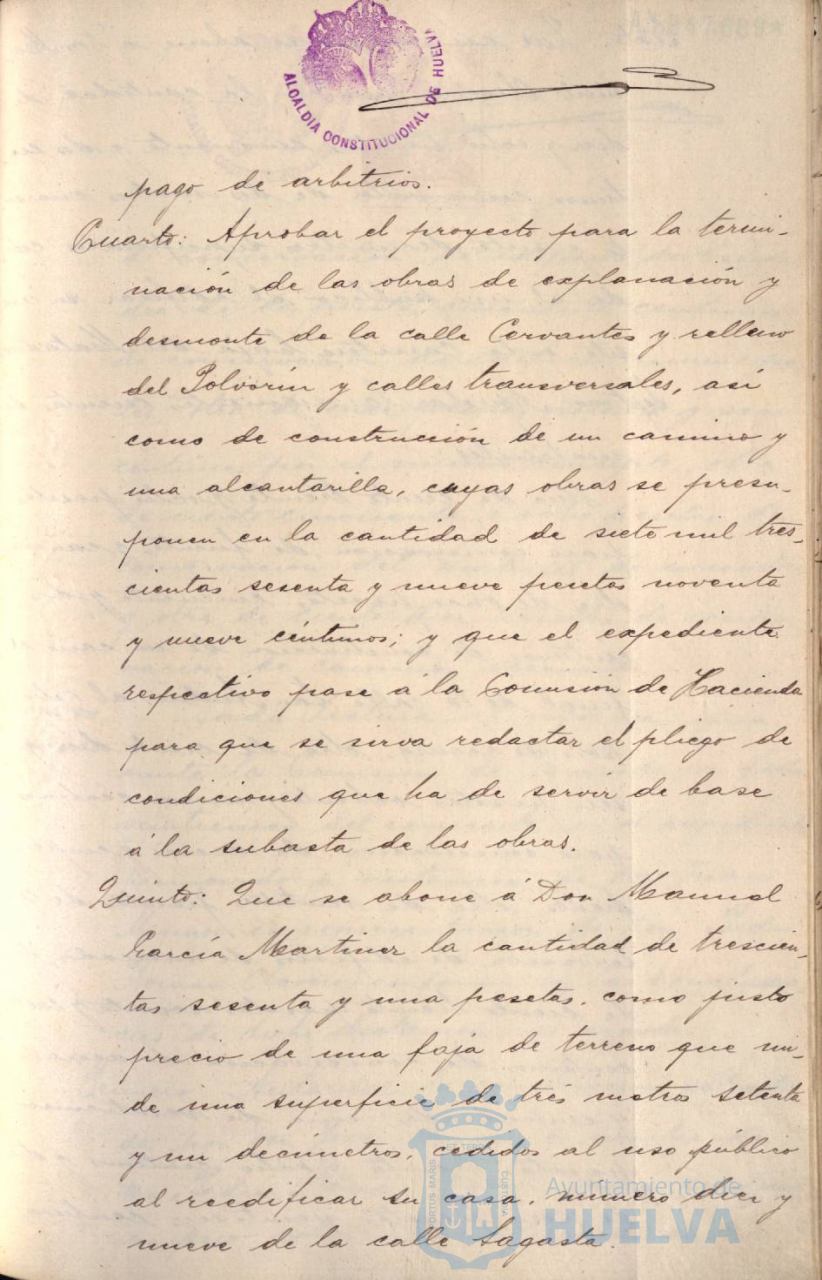 ALCALDIA CONSTITUCIONAL DE HUELVA
pago de arbitrios.
Cuarto: Aprobar el proyecto para la termi-
nación de las obras de explanación y
desmonte de la calle Cervantes y relleno
del Polvorín y calles transversales, así
como de construcción de un camino y
una alcantarilla, cuyas obras se presu-
ponen en la cantidad de siete mil tres-
cientas sesenta y nueve pesetas noventa
y nueve céntimos; y que el expediente
respectivo pase á la Comisión de Hacienda
para que se sirva redactar el pliego de
condiciones que ha de servir de base
á la subasta de las obras.
Quinto: Que se abone á Don Manuel
García Martinez la cantidad de trescien-
tas sesenta y una pesetas, como justo
precio de una faja de terreno que mi-
de una superficie de tres metros setenta
y un decímetros, cedidos al uso público
al reedificar su casa, número diez y
nueve de la calle Sagasta.
Ayuntamiento de
HUELVA
PORTUS MARIS